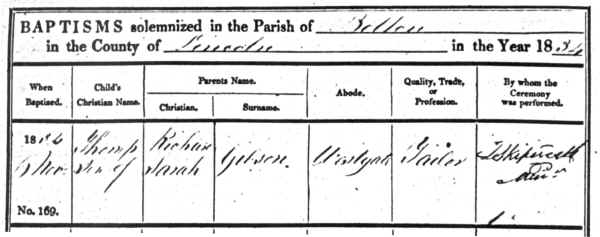 BAPTISMS solemnized in the Parish of Belton
in the County of Lincoln in the Year 18
When Baptised.
Child's Christian Name.
Parents Name.
Christian.
Surname.
Abode.
Quality, Trade, or Profession.
By whom the Ceremony was performed.
18
Nov.
No. 169.
Thomp
Son of
Richard
Sarah
Gibson
Westgate
Tailor